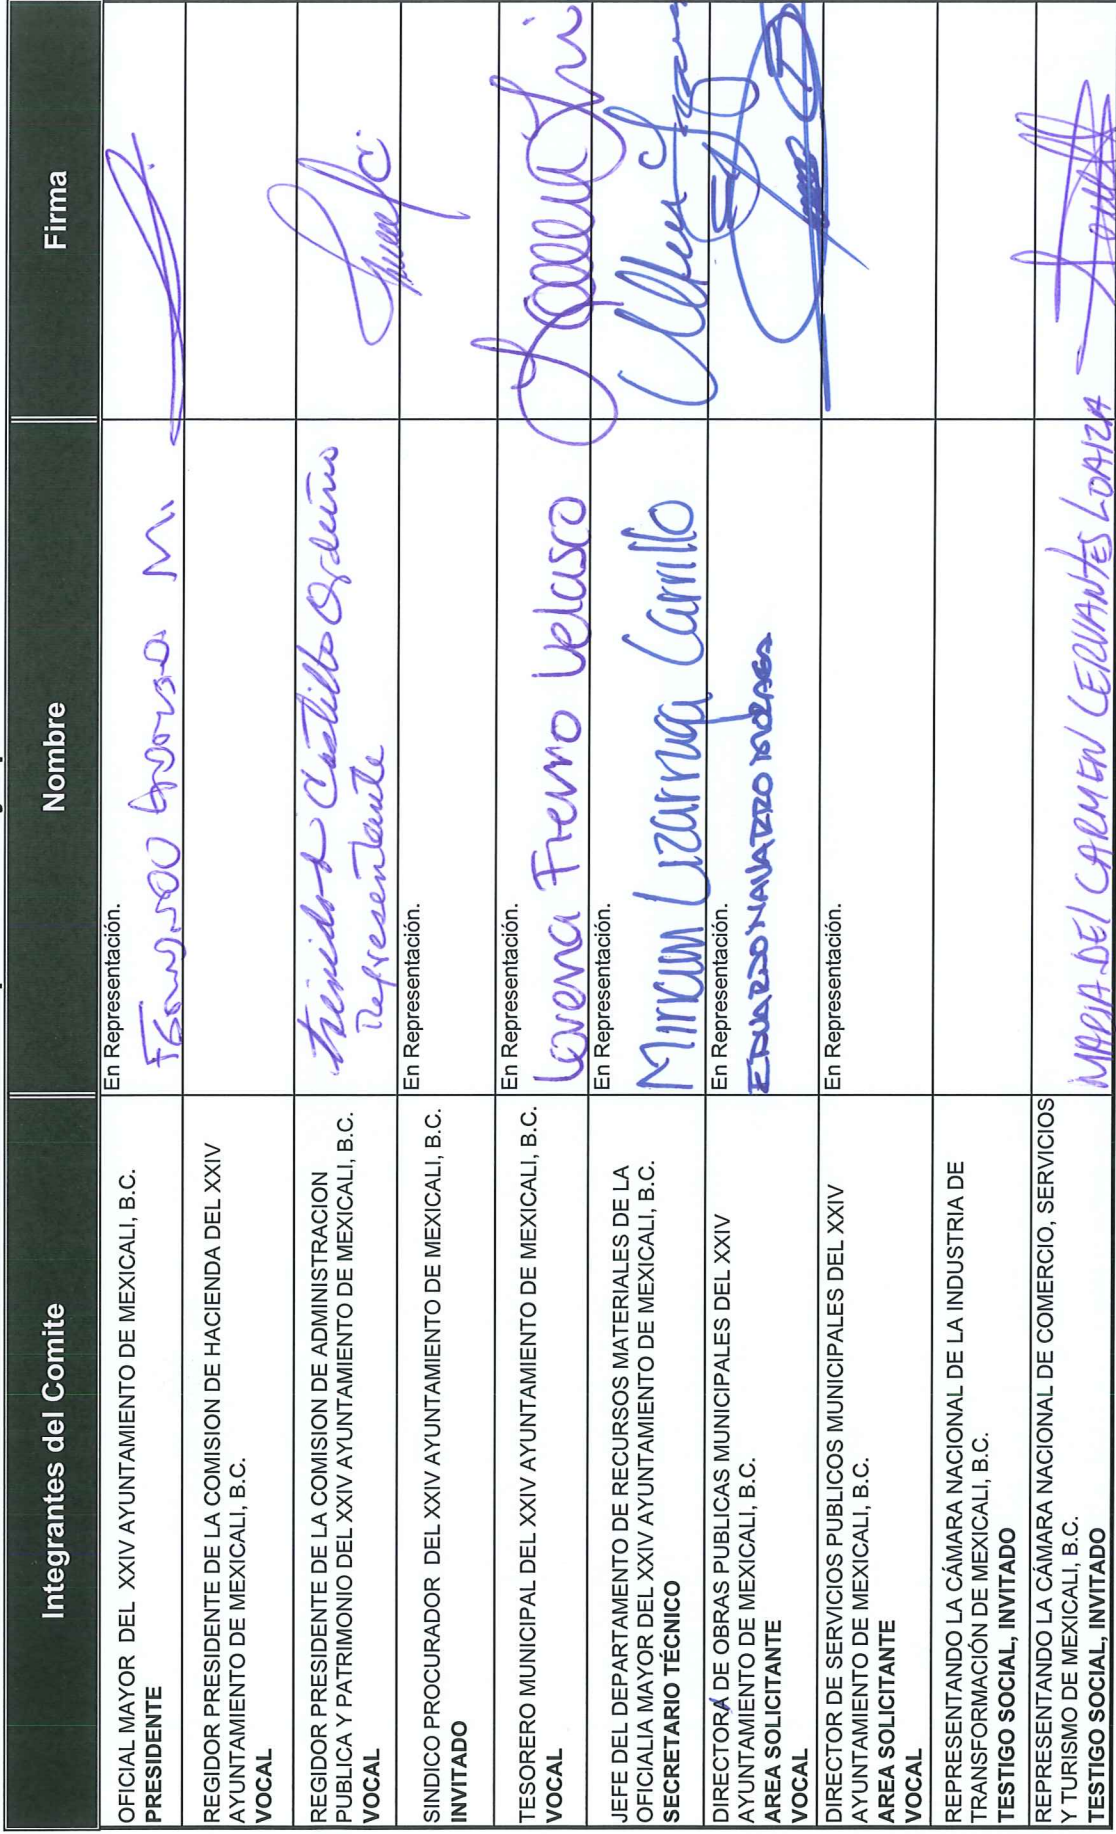 Integrantes del Comite
Nombre
Firma
OFICIAL MAYOR DEL XXIV AYUNTAMIENTO DE MEXICALI, B.C.
PRESIDENTE
En Representación.
REGIDOR PRESIDENTE DE LA COMISION DE HACIENDA DEL XXIV
AYUNTAMIENTO DE MEXICALI, B.C.
VOCAL
REGIDOR PRESIDENTE DE LA COMISION DE ADMINISTRACION
PUBLICA Y PATRIMONIO DEL XXIV AYUNTAMIENTO DE MEXICALI, B.C.
VOCAL
Castillo Orduño
Representante
SINDICO PROCURADOR DEL XXIV AYUNTAMIENTO DE MEXICALI, B.C.
INVITADO
En Representación.
TESORERO MUNICIPAL DEL XXIV AYUNTAMIENTO DE MEXICALI, B.C.
VOCAL
En Representación.
Lorena Fierro Velasco
JEFE DEL DEPARTAMENTO DE RECURSOS MATERIALES DE LA
OFICIALIA MAYOR DEL XXIV AYUNTAMIENTO DE MEXICALI, B.C.
SECRETARIO TÉCNICO
En Representación.
Miriam Lizarraga Carrillo
DIRECTORA DE OBRAS PUBLICAS MUNICIPALES DEL XXIV
AYUNTAMIENTO DE MEXICALI, B.C.
AREA SOLICITANTE
VOCAL
En Representación.
EDUARDO NAVARRO MORAGA
DIRECTOR DE SERVICIOS PUBLICOS MUNICIPALES DEL XXIV
AYUNTAMIENTO DE MEXICALI, B.C.
AREA SOLICITANTE
VOCAL
En Representación.
REPRESENTANDO LA CÁMARA NACIONAL DE LA INDUSTRIA DE
TRANSFORMACIÓN DE MEXICALI, B.C.
TESTIGO SOCIAL, INVITADO
REPRESENTANDO LA CÁMARA NACIONAL DE COMERCIO, SERVICIOS
Y TURISMO DE MEXICALI, B.C.
TESTIGO SOCIAL, INVITADO
MARIA DEL CARMEN CERVANTES LOAIZA